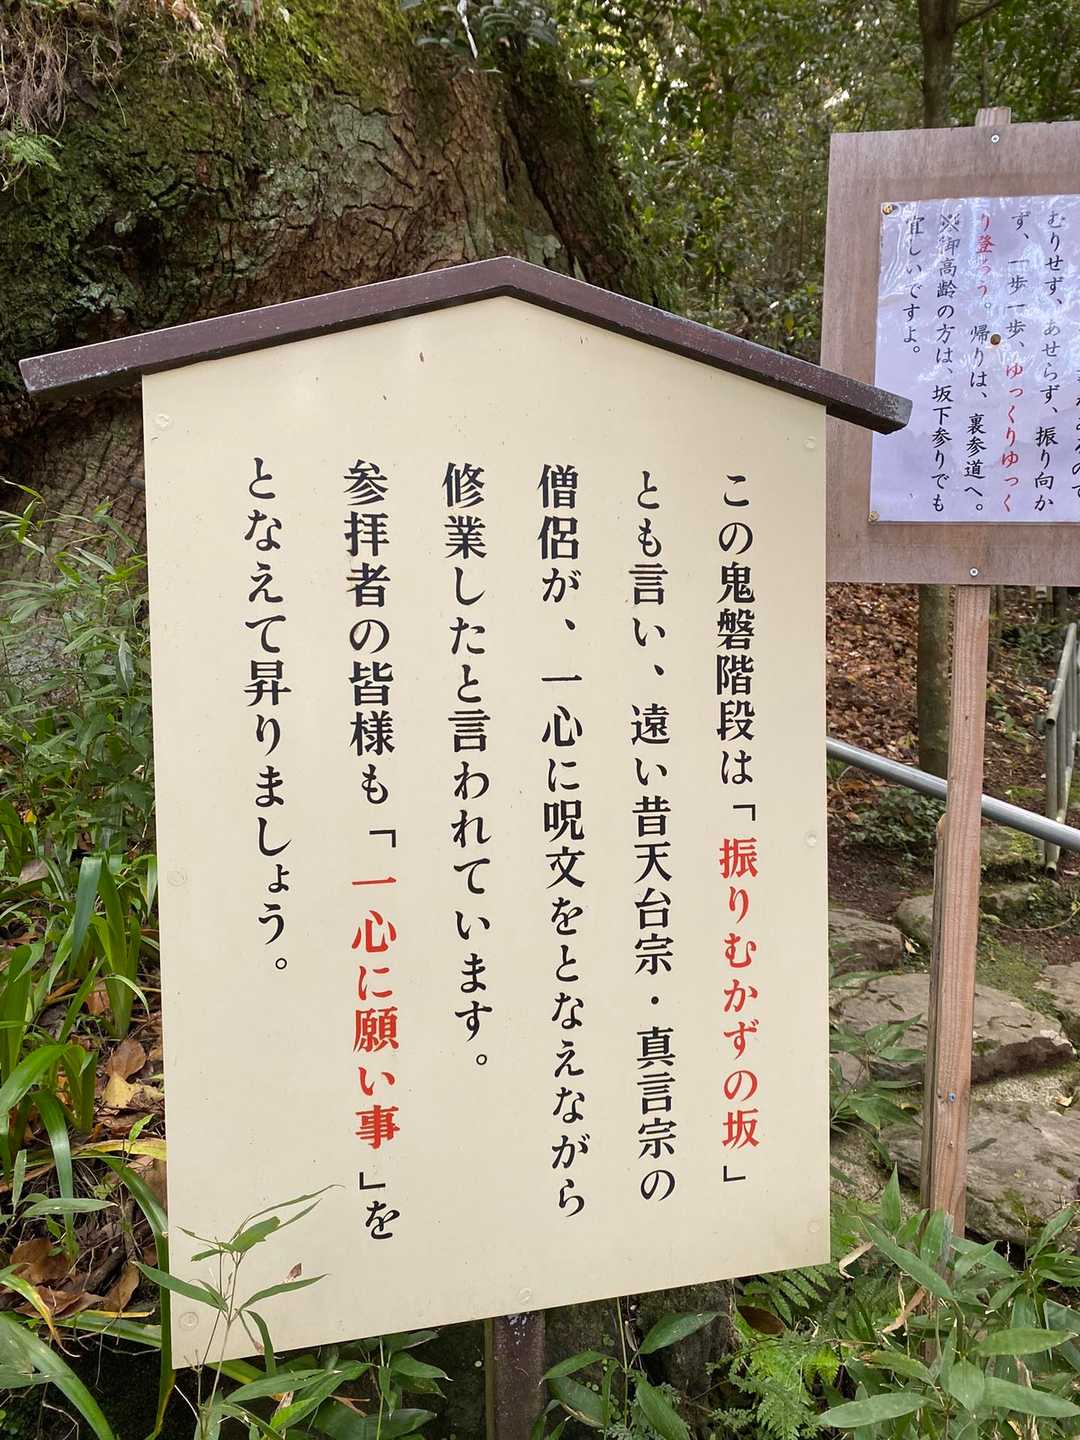 この鬼磐階段は「振りむかずの坂」
とも言い、遠い昔天台宗・真言宗の
僧侶が、一心に呪文をとなえながら
修業したと言われています。
参拝者の皆様も「一心に願い事」を
となえて昇りましょう。
むりせず、あせらず、振り向か
ず、一歩一歩、ゆっくりゆっく
り登ろう。帰りは、裏参道へ。
御高齢の方は、坂下参りでも
宜しいですよ。